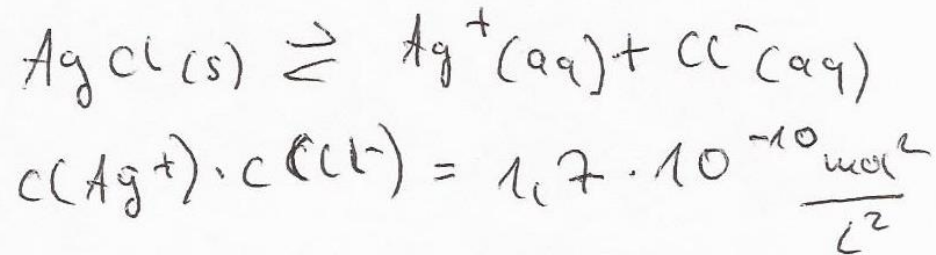 AgCl(s) ⇌ Ag⁺(aq) + Cl⁻(aq)
c(Ag⁺) · c(Cl⁻) = 1,7 · 10⁻¹⁰ mol²/L²